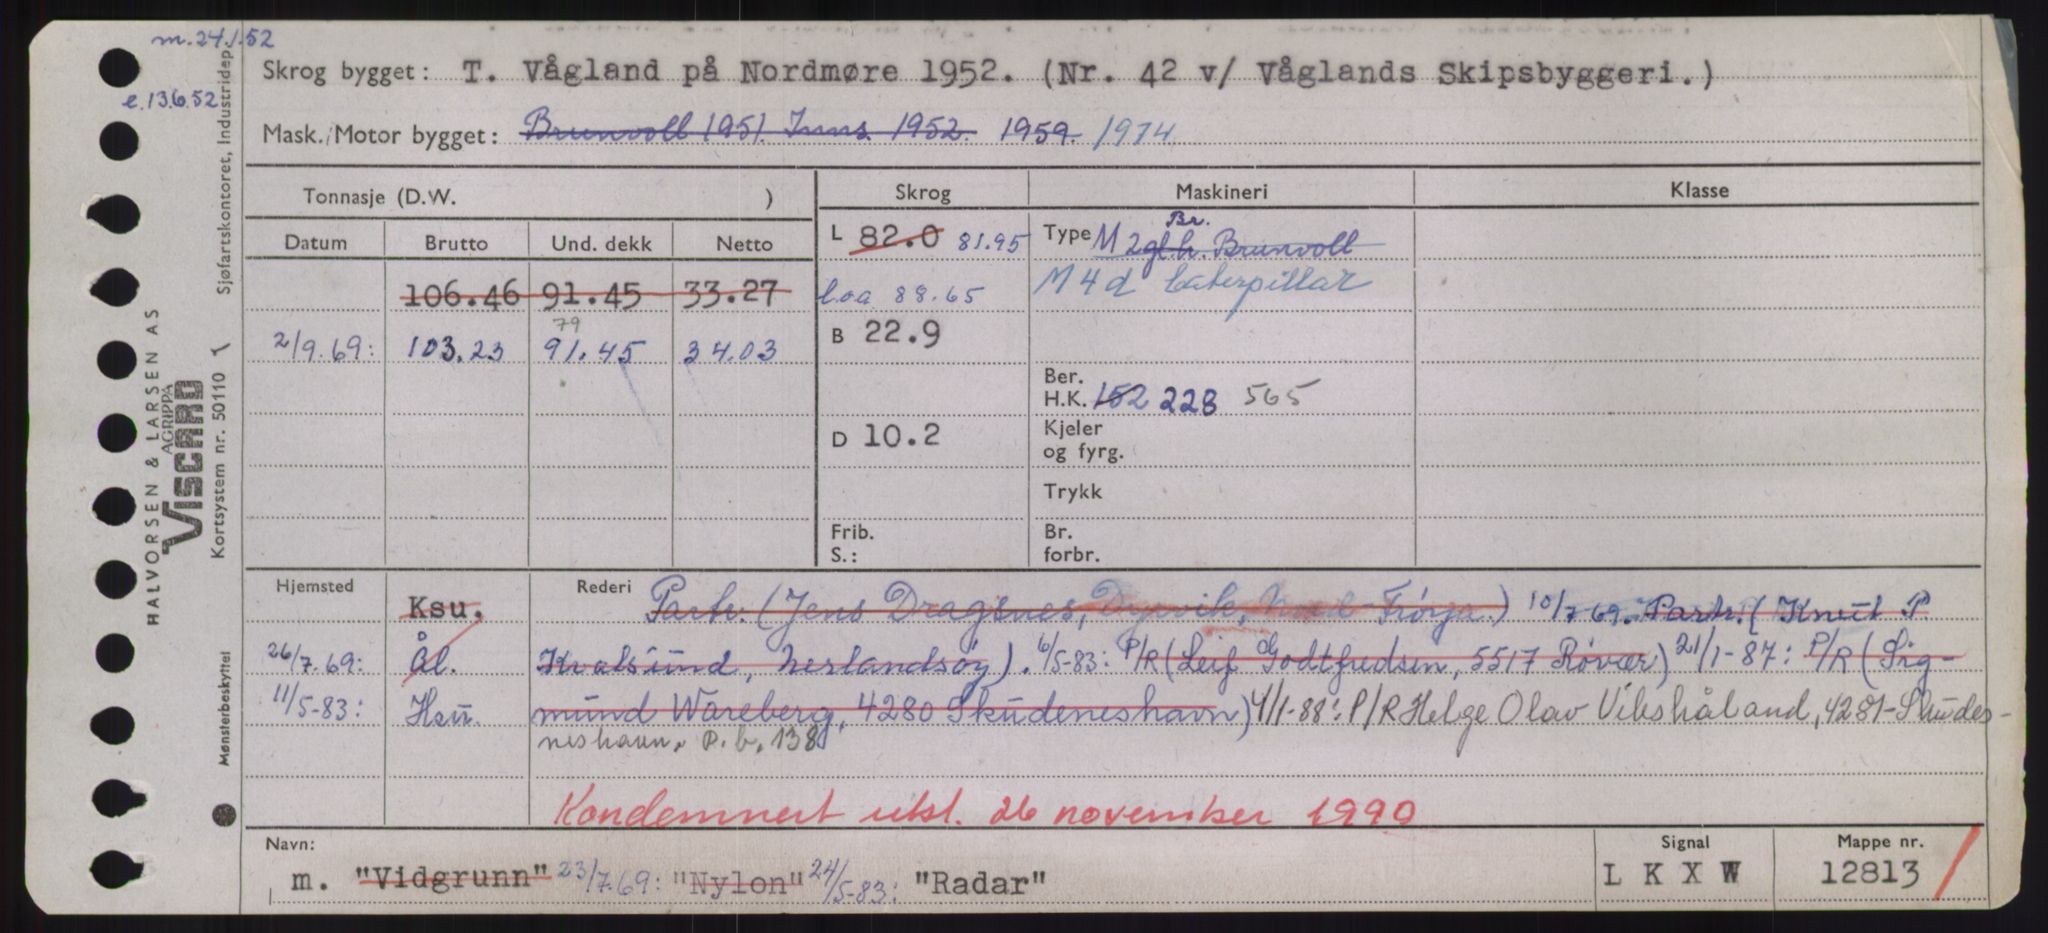 m. 24.1.52
e. 13.6.52
Skrog bygget: T. Vågland på Nordmøre 1952. (Nr. 42 v/ Våglands Skipsbyggeri.)
Mask./Motor bygget: Brunvoll 1951. Inns. 1952. 1959. 1974
Tonnasje (D.W. ) Skrog Maskineri Klasse
Datum Brutto Und. dekk Netto
L 82.0 81.95 Type M Br. 2 gl.h. Brunvoll
106.46 91.45 33.27 l.o.a 88.65 M 4 d Caterpillar
2/9.69: 103.23 91.45 79 34.03 B 22.9
Ber.
H.K. 152 228 565
D 10.2 Kjeler
og fyrg.
Trykk
Frib. Br.
S.: forbr.
Hjemsted Rederi
Ksu. Partr. (Jens Dragsnes, Dyrvik, Frøya.) 10/7 69. Partr. (Knut P
26/7.69: Ål. Kvalsund, Nerlandsøy). 6/5-83: P/R (Leif G Godtfredsen, 5517 Røvær) 21/1-87: P/R (Sig-
11/5-83: Hsu. mund Wareberg, 4280 Skudeneshavn) 4/1-88: P/R Helge Olav Vikshåland, 4281-Skudes-
neshavn. P.b. 138
Kondemnert utst. 26 november 1990
Navn: Signal Mappe nr.
m. "Vidgrunn" 23/7.69: "Nylon" 24/5-83: "Radar" L K X W 12813
HALVORSEN & LARSEN AS
VISCARD
AGRIPPA
Kortsystem nr. 50110
Sjøfartskontoret, Industridep
Mønsterbeskyttel